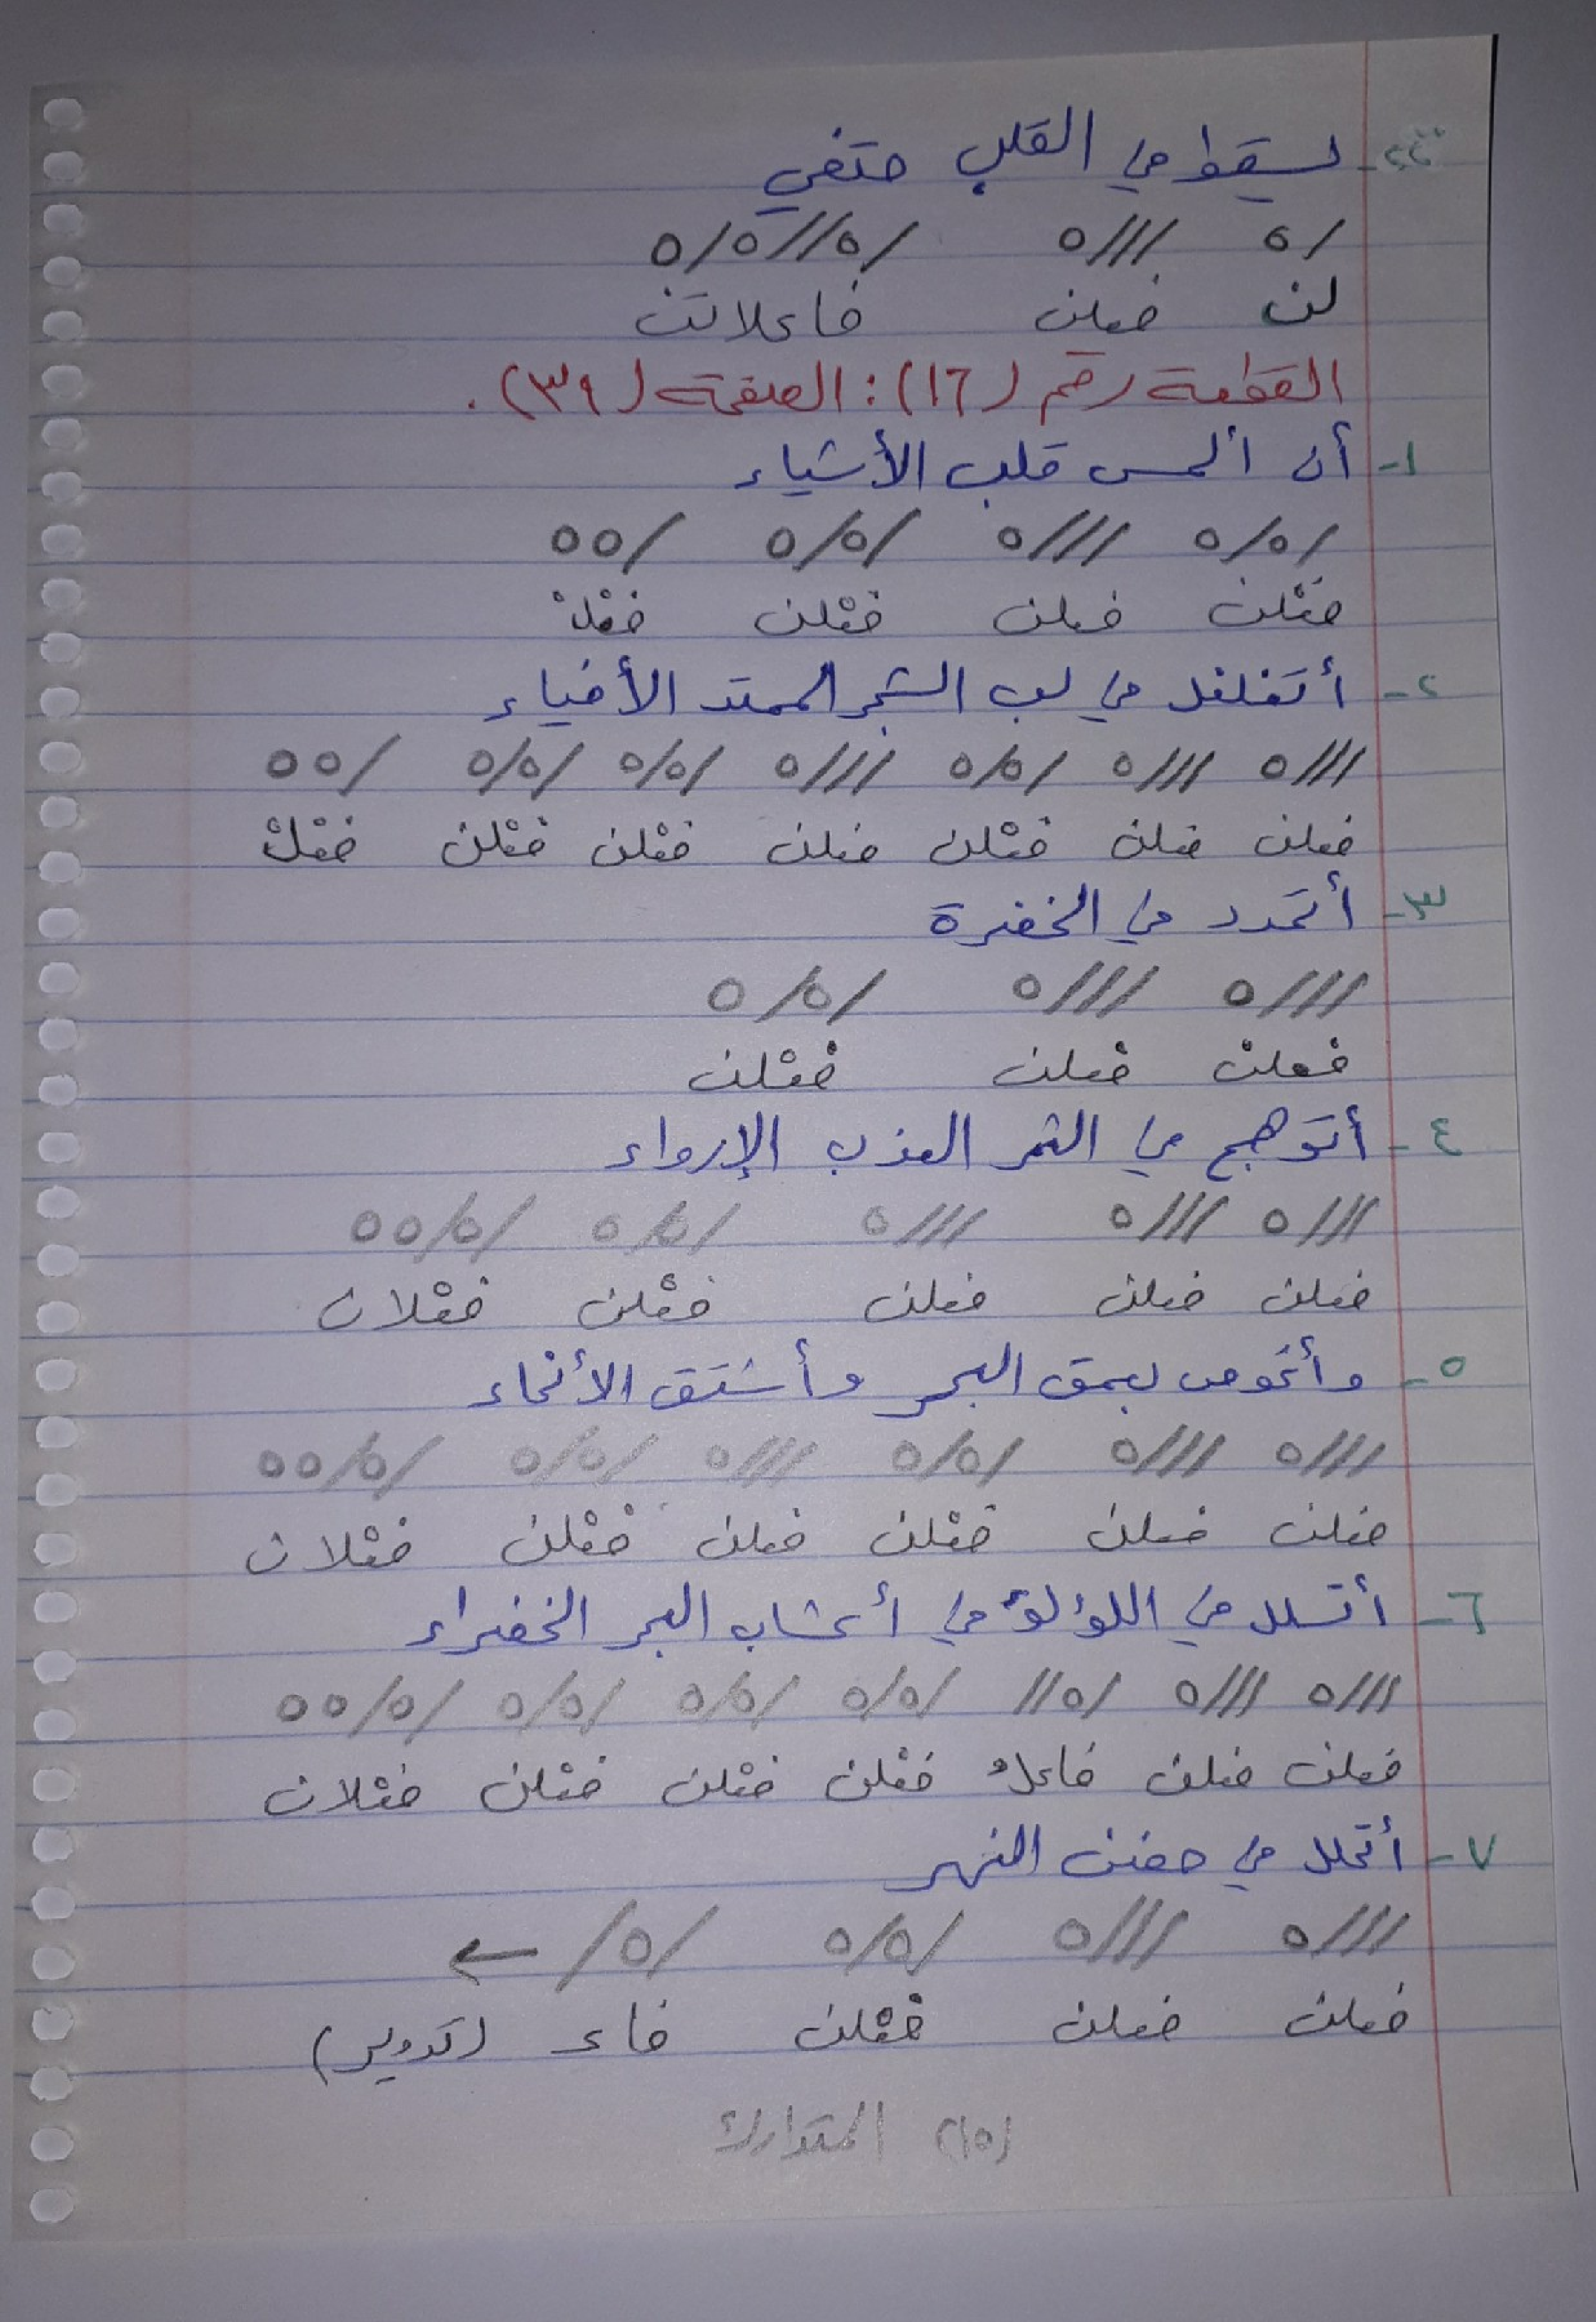 ٢٢- ليسقط في القلب حتفي
/ه ///ه /ه//ه/ه
لن فعلن فاعلاتن
القطعة رقم (١٦): الصفحة (٣٩).
١- أن ألمس قلب الأشياء
/ه/ه ///ه /ه/ه /هه
فعْلن فعلن فعْلن فعْلْ
٢- أتغلغل في لب الشجر الممتد الأفياء
///ه ///ه /ه/ه ///ه /ه/ه /ه/ه /هه
فعلن فعلن فعْلن فعلن فعْلن فعْلن فعْلْ
٣- أتمدد في الخضرة
///ه ///ه /ه/ه
فعلن فعلن فعْلن
٤- أتوهج في الثمر العذب الإرواء
///ه ///ه ///ه /ه/ه /ه/هه
فعلن فعلن فعلن فعْلن فعْلان
٥- وأغوص لعمق البحر وأستق الأنحاء
///ه ///ه /ه/ه ///ه /ه/ه /ه/هه
فعلن فعلن فعْلن فعلن فعْلن فعْلان
٦- أتسلل في اللؤلؤ في أعشاب البحر الخضراء
///ه ///ه /ه// /ه/ه /ه/ه /ه/ه /ه/هه
فعلن فعلن فاعلُ فعْلن فعْلن فعْلن فعْلان
٧- أتحلل في حضن النهر
///ه ///ه /ه/ه /ه/ ←
فعلن فعلن فعْلن فاع (تدوير)
(١٥) المتدارك